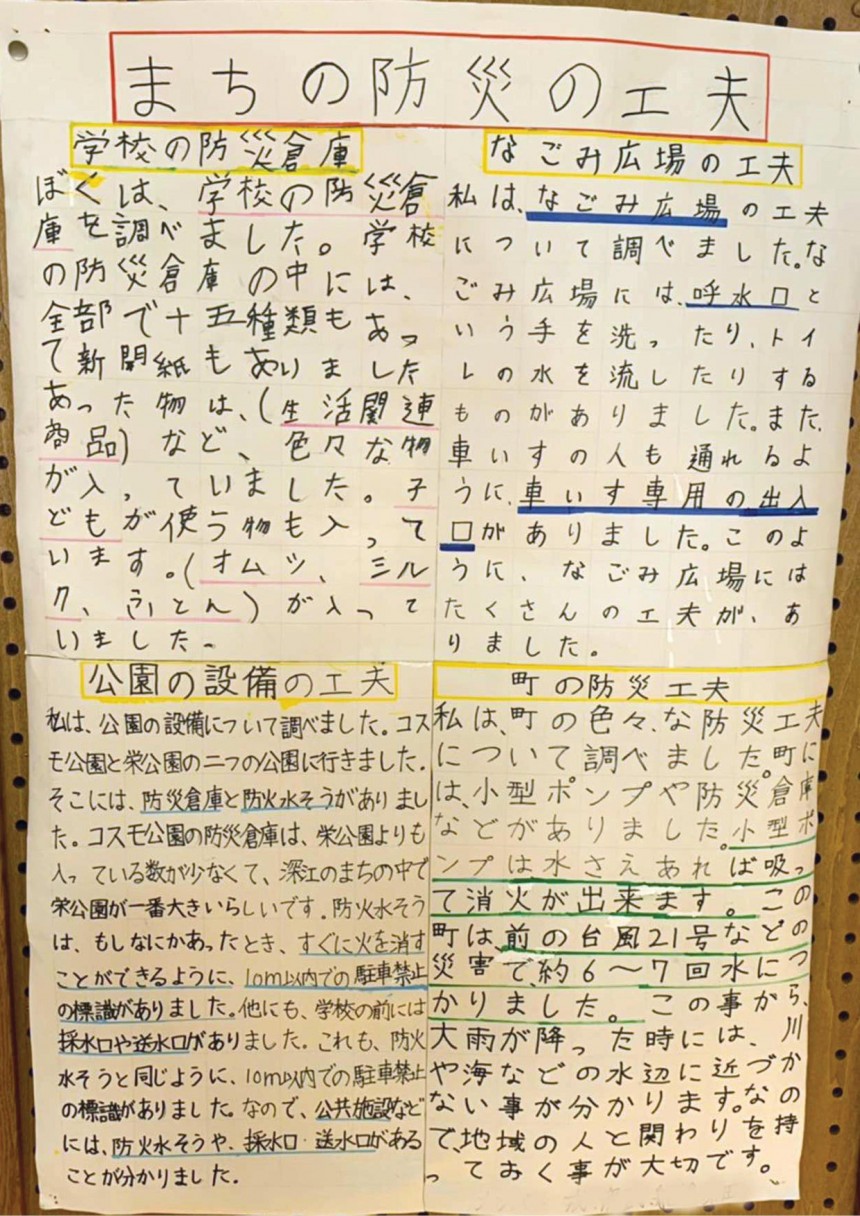 まちの防災の工夫
学校の防災倉庫
ぼくは、学校の防災倉
庫を調べました。学校
の防災倉庫の中には、
全部で十五種類もあっ
て新聞紙もありました
あった物は、(生活関連
商品)など、色々な物
が入っていました。子
どもが使う物も入って
います。(オムツ、ミル
ク、ふとん)が入って
いました。
なごみ広場の工夫
私は、なごみ広場の工夫
について調べました。な
ごみ広場には、呼水口と
いう手を洗ったり、トイ
レの水を流したりする
ものがありました。また、
車いすの人も通れるよ
うに、車いす専用の出入
口がありました。このよ
うに、なごみ広場には
たくさんの工夫が、あ
りました。
公園の設備の工夫
私は、公園の設備について調べました。コス
モ公園と栄公園の二つの公園に行きました。
そこには、防災倉庫と防火水そうがありまし
た。コスモ公園の防災倉庫は、栄公園よりも
入っている数が少なくて、深江のまちの中で
栄公園が一番大きいらしいです。防火水そう
は、もしなにかあったとき、すぐに火を消す
ことができるように、10m以内での駐車禁止
の標識がありました。他にも、学校の前には
採水口や送水口がありました。これも、防火
水そうと同じように、10m以内での駐車禁止
の標識がありました。なので、公共施設など
には、防火水そうや、採水口・送水口がある
ことが分かりました。
町の防災工夫
私は、町の色々、な防災工夫
について調べました。町に
は、小型ポンプや防災倉庫
などがありました。小型ポ
ンプは水さえあれば吸っ
て消火が出来ます。この
町は前の台風21号などの
災害で、約6〜7回水につ
かりました。この事から、
大雨が降った時には、川
や海などの水辺に近づか
ない事が分かります。なの
で、地域の人と関わりを持
っておく事が大切です。